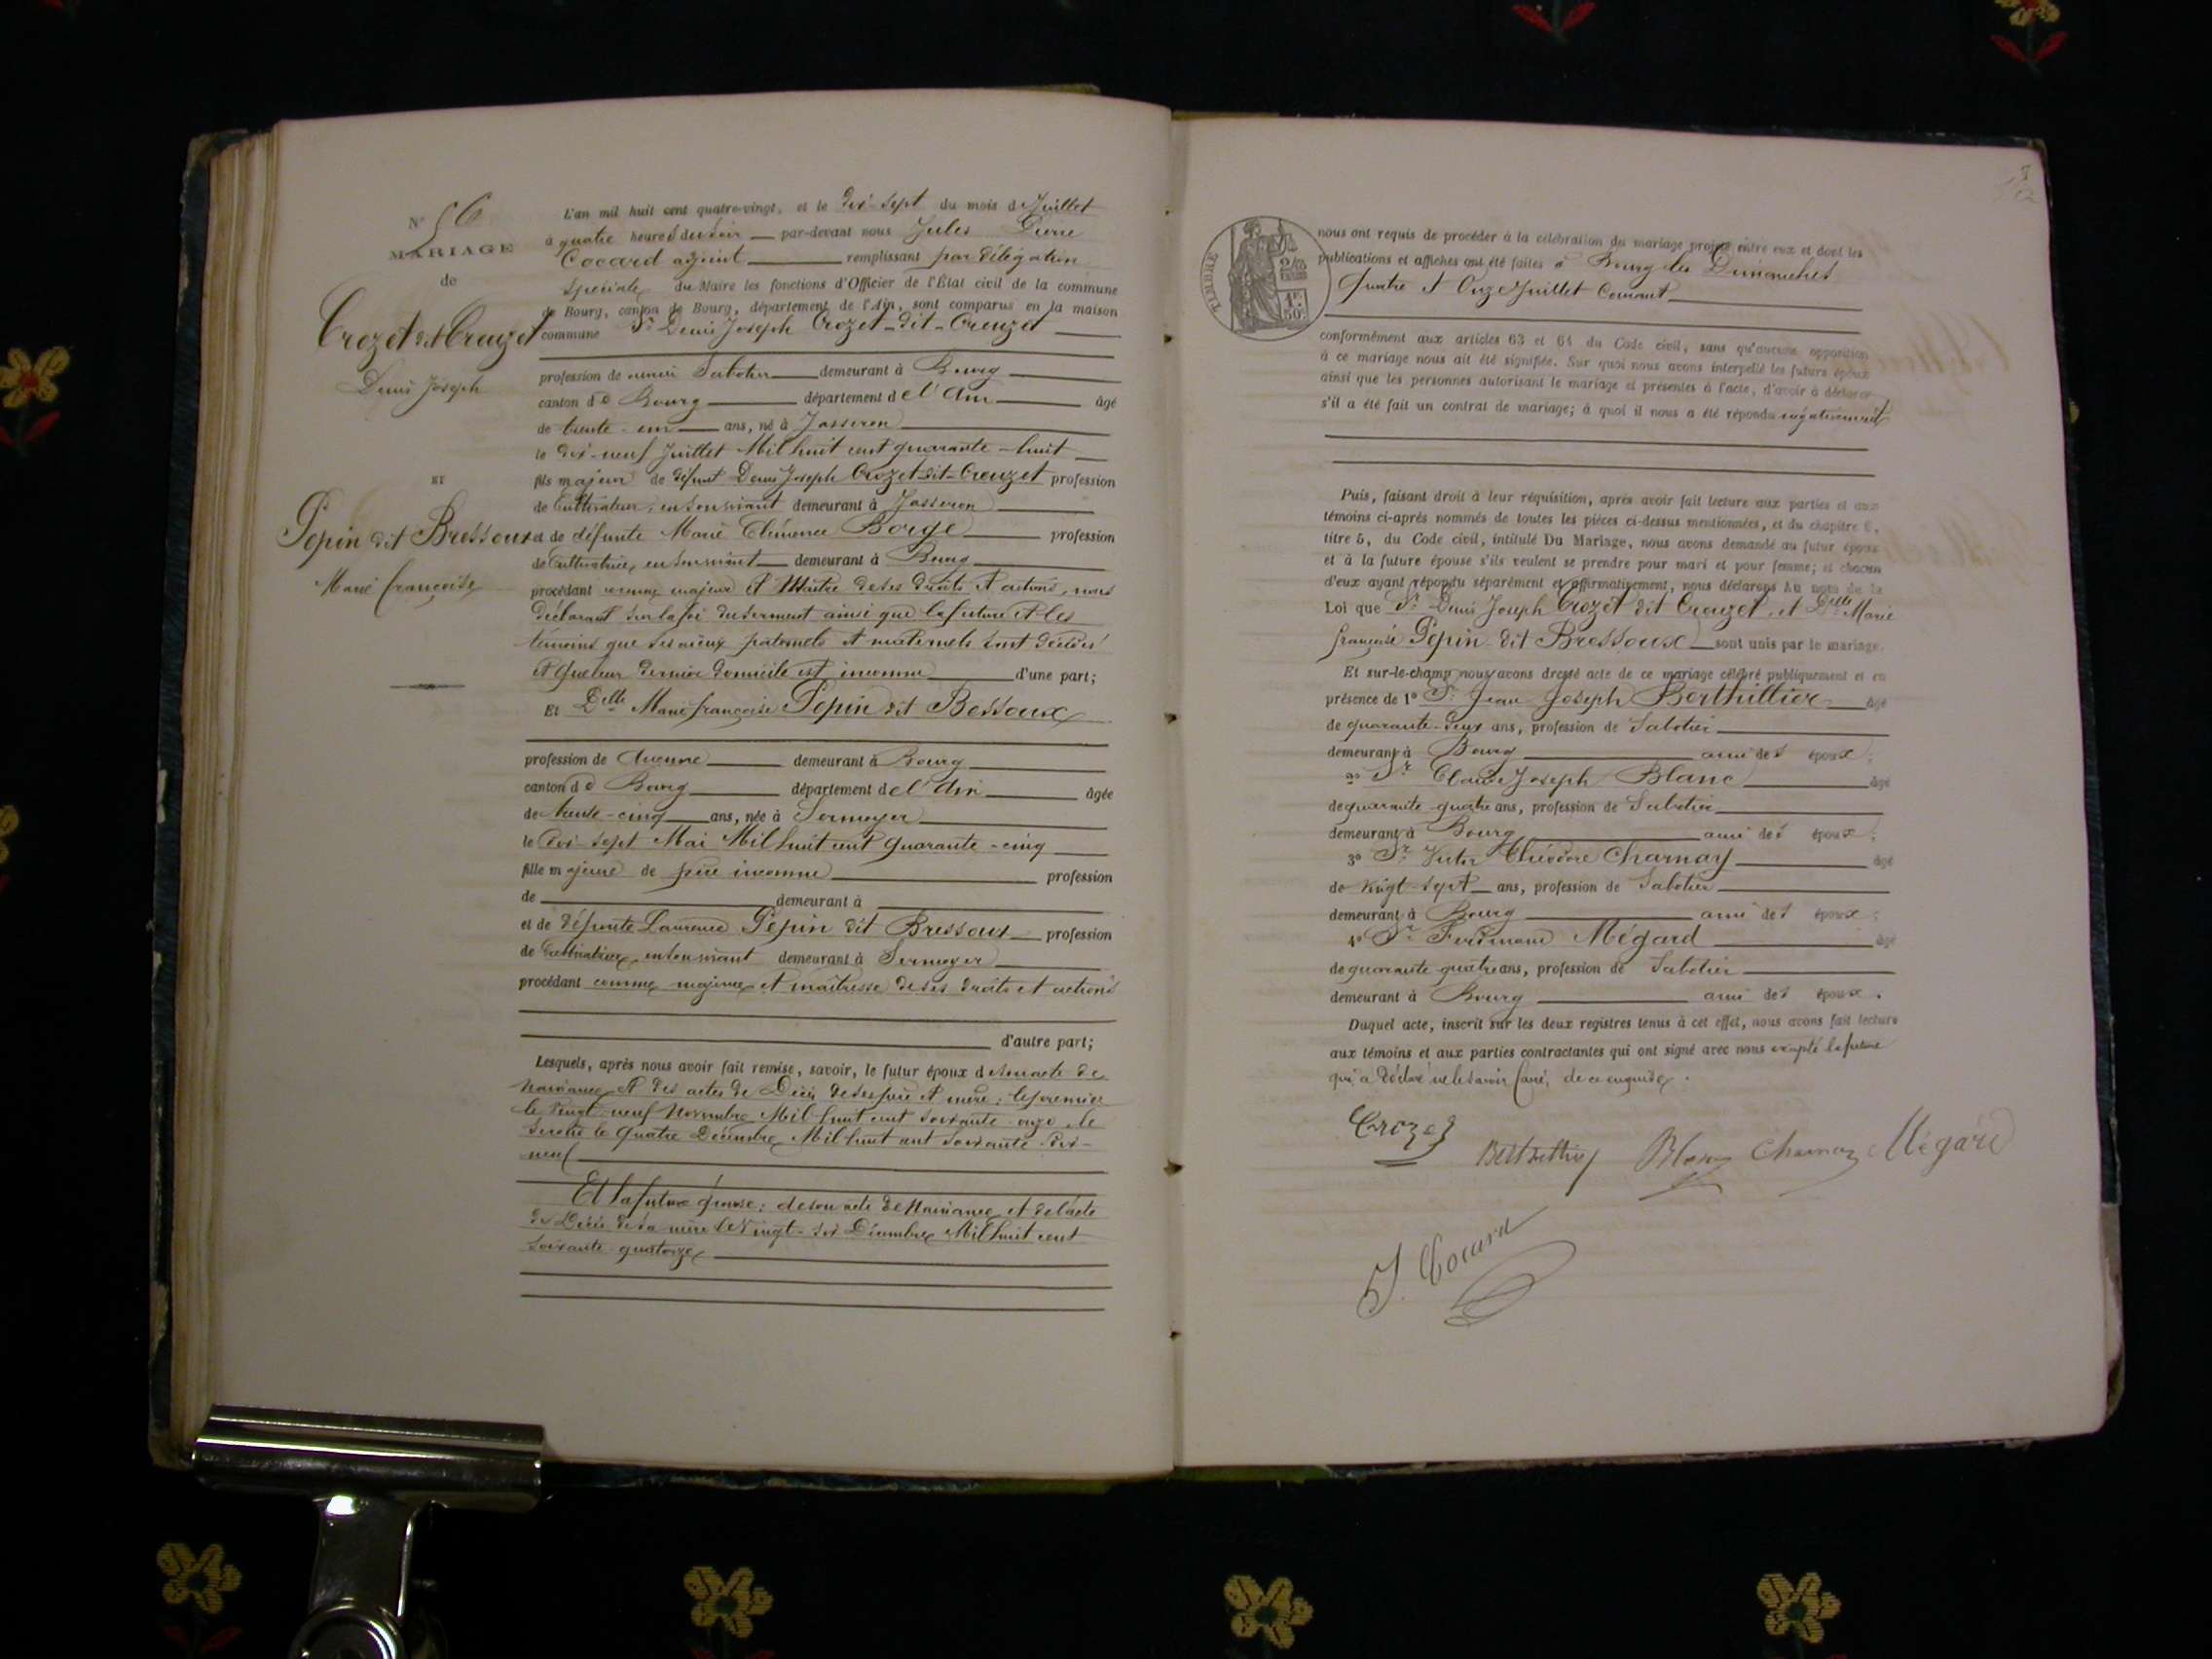 N° 56
MARIAGE
de
Crozet dit Creuzet
Denis Joseph
ET
Pepin dit Bressoux
Marie françoise
L'an mil huit cent quatre-vingt, et le dix-sept du mois de Juillet
à quatre heures du soir par-devant nous Jules Pierre
Cocard adjoint remplissant par délégation
spéciale du Maire les fonctions d'Officier de l'État civil de la commune
de Bourg, canton de Bourg, département de l'Ain, sont comparus en la maison
commune Sr Denis Joseph Crozet-dit-Creuzet
profession de ouvrier Sabotier demeurant à Bourg
canton de Bourg département de l'Ain âgé
de trente-un ans, né à Jasseron
le dix-neuf Juillet Mil huit cent quarante-huit
fils majeur de défunt Denis Joseph Crozet-dit-Creuzet profession
de Cultivateur, en son vivant demeurant à Jasseron
et de défunte Marie Clémence Borge profession
de Cultivatrice, en son vivant demeurant à Bourg
procédant comme majeur et Maître de ses droits et actions, nous
déclarant sur la foi du serment ainsi que la future et les
témoins que ses aïeux paternels et maternels sont décédés
et que leur dernier domicile est inconnu d'une part;
Et Delle Marie françoise Pepin dit Bessoux
profession de Aucune demeurant à Bourg
canton de Bourg département de l'Ain âgée
de trente-cinq ans, née à Sermoyer
le dix-sept Mai Mil huit cent quarante-cinq
fille majeure de père inconnu profession
de demeurant à
et de défunte Laurence Pepin dit Bressoux profession
de Cultivatrice, en son vivant demeurant à Sermoyer
procédant comme majeure et maîtresse de ses droits et actions
d'autre part;
Lesquels, après nous avoir fait remise, savoir, le futur époux de son acte de
Naissance et des actes de Décès de ses père et mère: le premier
le vingt-neuf Novembre Mil huit cent soixante-onze, le
second le quatre Décembre Mil huit cent soixante-dix-
neuf
Et la future épouse: de son acte de Naissance et de l'acte
de Décès de sa mère le vingt-six Décembre Mil huit cent
soixante-quatorze
TIMBRE
2/10
EN SUS
1F
50c
nous ont requis de procéder à la célébration du mariage projeté entre eux et dont les
publications et affiches ont été faites à Bourg les Dimanches
quatre et Onze Juillet Courant
conformément aux articles 63 et 64 du Code civil, sans qu'aucune opposition
à ce mariage nous ait été signifiée. Sur quoi nous avons interpellé les futurs époux
ainsi que les personnes autorisant le mariage et présentes à l'acte, d'avoir à déclarer
s'il a été fait un contrat de mariage; à quoi il nous a été répondu négativement
Puis, faisant droit à leur réquisition, après avoir fait lecture aux parties et aux
témoins ci-après nommés de toutes les pièces ci-dessus mentionnées, et du chapitre 6,
titre 5, du Code civil, intitulé Du Mariage, nous avons demandé au futur époux
et à la future épouse s'ils veulent se prendre pour mari et pour femme; et chacun
d'eux ayant répondu séparément et affirmativement, nous déclarons Au nom de la
Loi que Sr Denis Joseph Crozet dit Creuzet, et Delle Marie
françoise Pepin dit Bressoux sont unis par le mariage.
Et sur-le-champ nous avons dressé acte de ce mariage célébré publiquement et en
présence de 1° Sr Jean Joseph Berthillier âgé
de quarante-deux ans, profession de Sabotier
demeurant à Bourg ami des époux;
2° Sr Claude Joseph Blanc âgé
de quarante-quatre ans, profession de Sabotier
demeurant à Bourg ami des époux;
3° Sr Victor Théodore Charnay âgé
de vingt-sept ans, profession de Sabotier
demeurant à Bourg ami des époux;
4° Sr Ferdinand Mégard âgé
de quarante-quatre ans, profession de Sabotier
demeurant à Bourg ami des époux.
Duquel acte, inscrit sur les deux registres tenus à cet effet, nous avons fait lecture
aux témoins et aux parties contractantes qui ont signé avec nous excepté la future
qui a déclaré ne le savoir faire, de ce enquise.
Crozet
Berthillier Blanc Charnay Mégard
J. Cocard